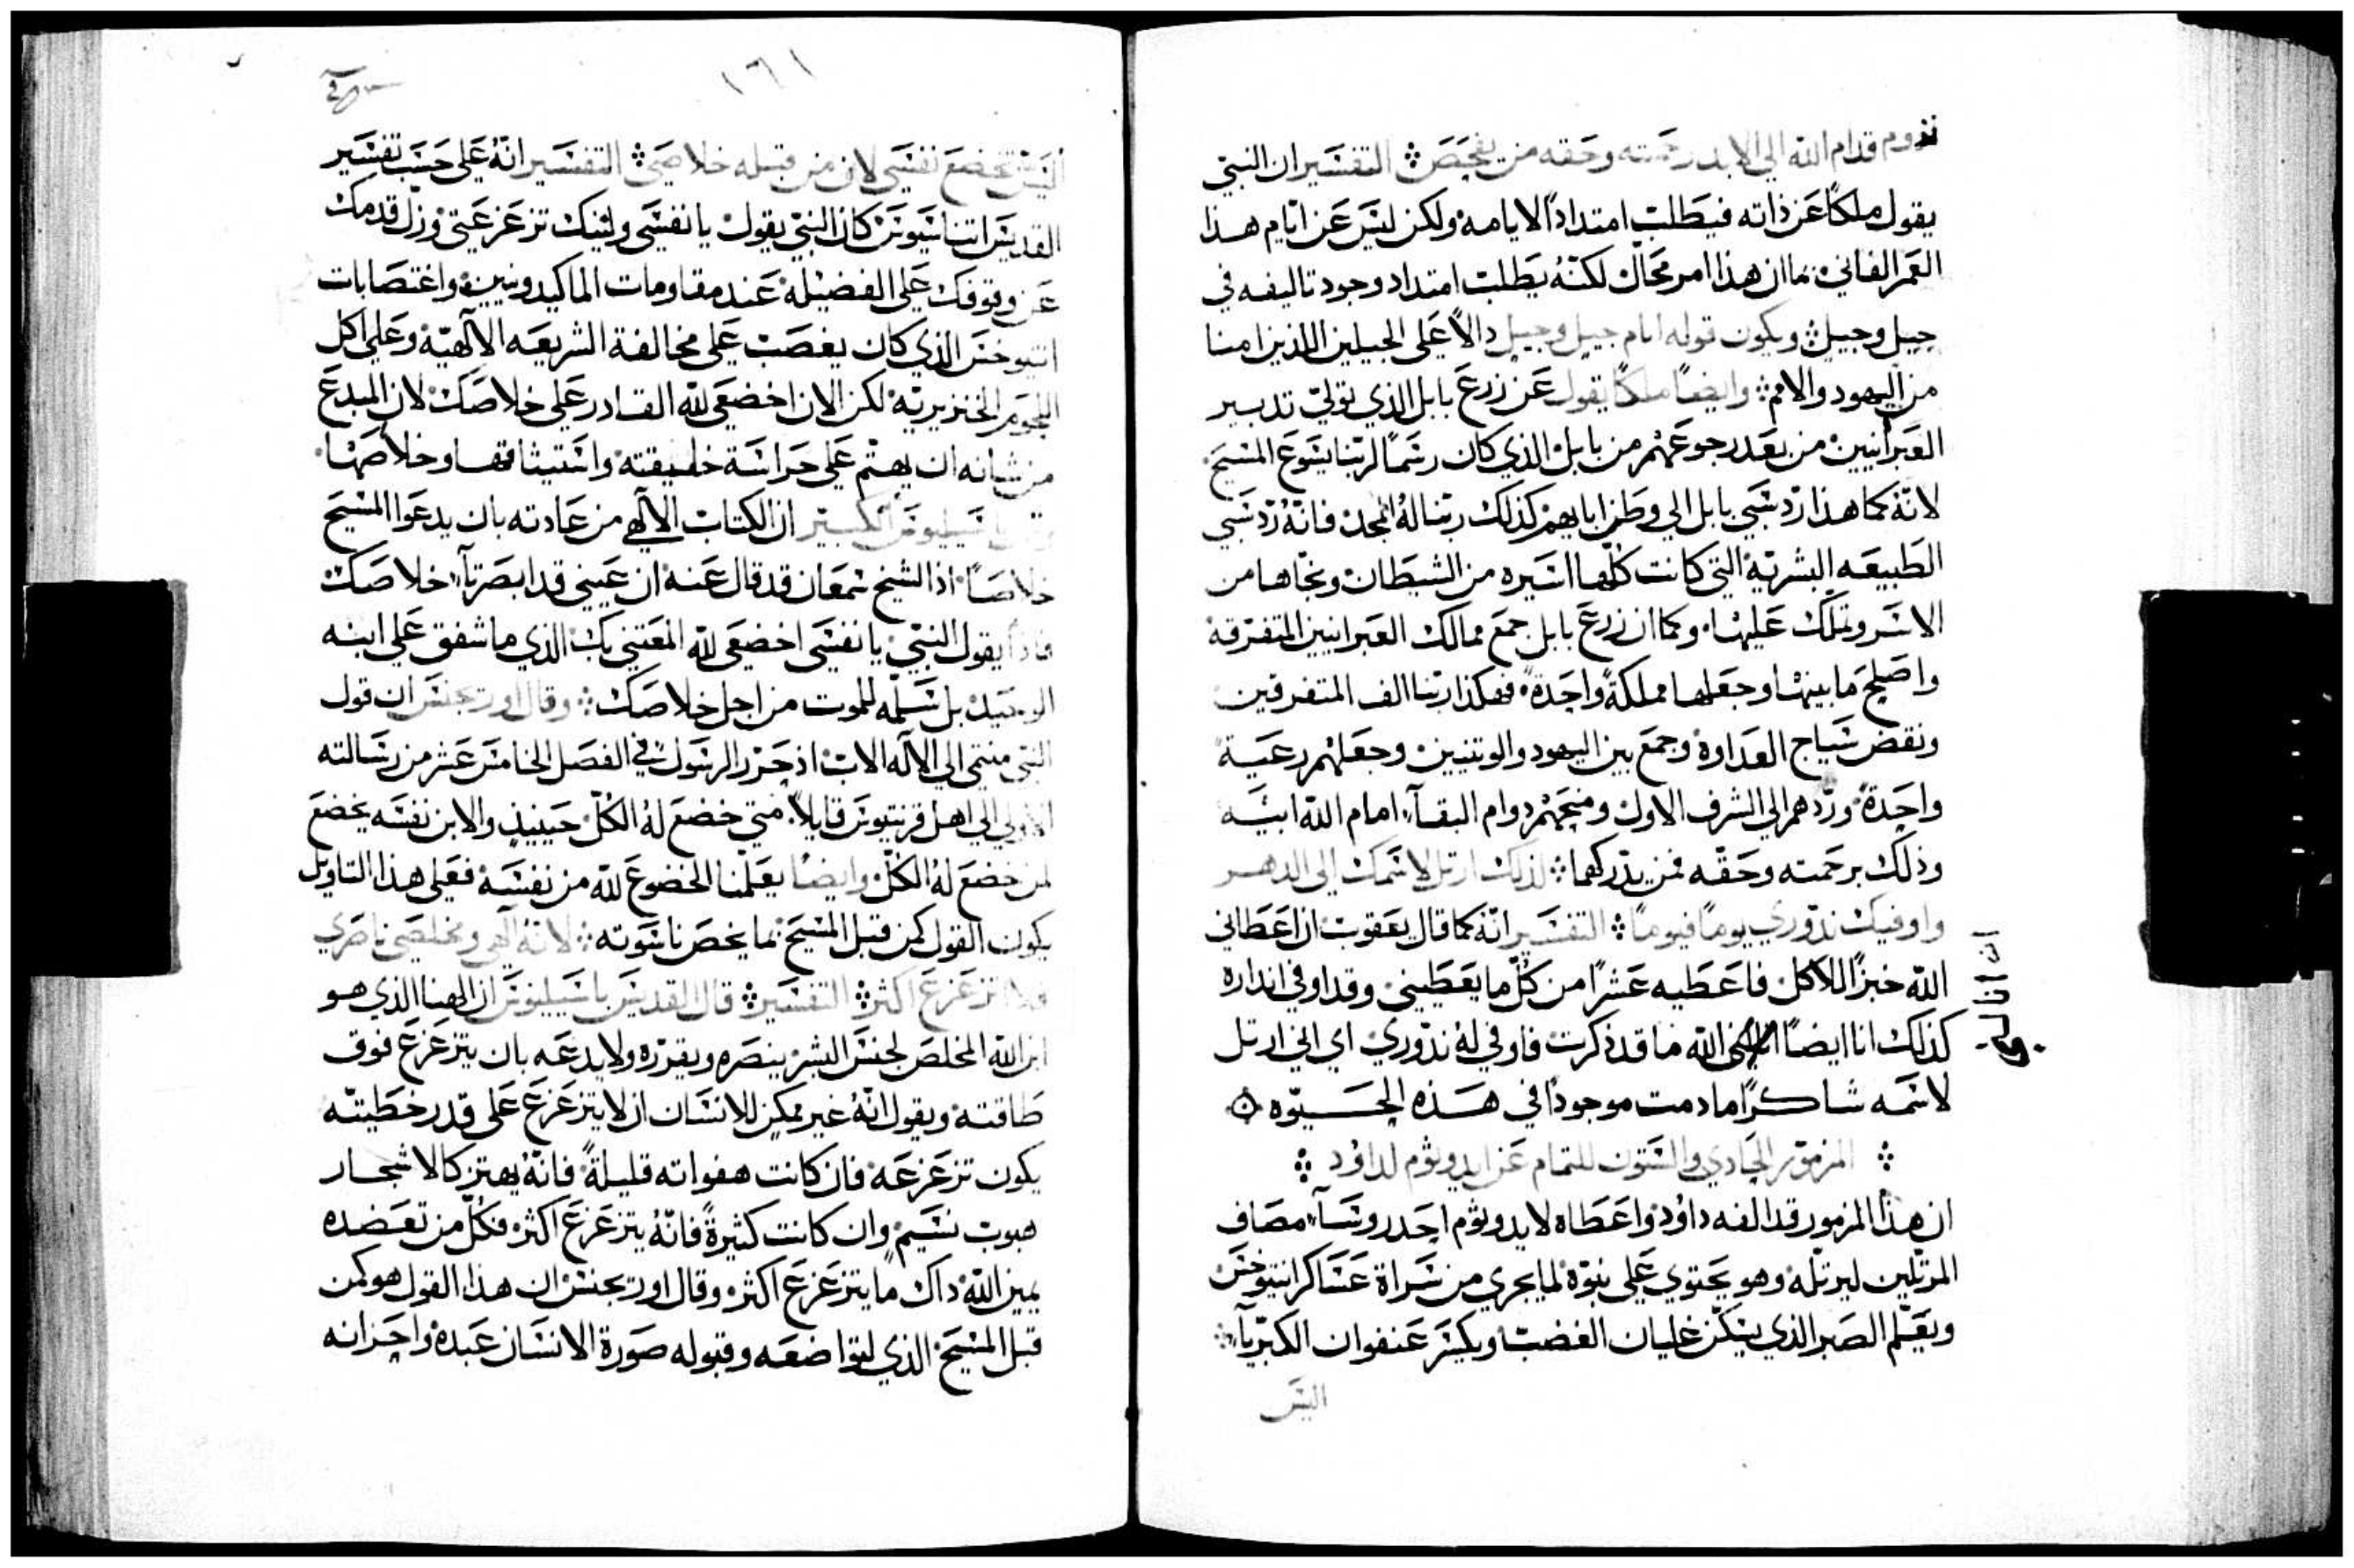 تدوم قدام الله الي الابد رحمته وحقه من يفحص ۞ التفسير ان النبي
يقول ملكًا عن ذاته فيطلب امتدادًا لايامه ولكن ليس عن ايام هذا
العمر الفاني بما ان هذا امر محال لكنه يطلب امتداد وجود تاليفه في
جيل وجيل ويكون قوله ايام جيل وجيل دالاً على الجيلين اللذين امنا
من اليهود والامم وايضًا ملكًا يقول عن زرع بابل الذي تولي تدبير
العبرانيين من بعد رجوعهم من بابل الذي كان رسمًا لربنا يسوع المسيح
لانه كما هذا ردّ سبي بابل الي وطن ابايهم كذلك ربنا له المجد فانه ردّ سبي
الطبيعه البشريه التي كانت كلها اسيره من الشيطان ونجاها من
الاسر وتملك عليها وكما ان زرع بابل جمع ممالك العبرانيين المتفرقة
واصلح ما بينها وجعلها مملكةً واحدةً فهكذا ربنا الف المتفرقين
ونقض سياج العداوة وجمع بين اليهود والوثنيين وجعلهم رعيةً
واحدةً وردّهم الي الشرف الاول ومنحهم دوام البقآء امام الله ابيه
وذلك برحمته وحقه فمن يدركهما لذلك ارتل لاسمك الي الدهر
واوفيك نذوري يومًا فيومًا التفسير انه كما قال يعقوب ان اعطاني
الله خبزًا للاكل فاعطيه عشرًا من كل ما يعطيني وقد اوفي انذاره
كذلك انا ايضًا الله ما قد ذكرت فاوفي له نذوري اي اني ارتل
لاسمه شاكرًا ما دمت موجودًا في هذه الحيوه
المزمور الحادي والستون للتمام عن ايدوثوم لداود
ان هذا المزمور قد الفه داود واعطاه لايدوثوم احد روسآء مصاف
المرتلين ليرتله وهو يحتوي على نبوّة لما يجري من شراة عساكر انتيوخس
ويعلّم الصبر الذي يسكّن غليان الغضب ويكسر عنفوان الكبريآء
اليس
١٦١
اليس تخضع نفسي لان من قبله خلاصي التفسير انه على حسب تفسير
القديس اتناسيوس كان النبي يقول يا نفسي ولئنك تزعزعتي وزل قدمك
عن وقوفك على الفضيلة عند مقاومات الماكيدونيين واغتصابات
انتيوخس الذي كان يغصب على مخالفة الشريعه الالهيّة وعلي اكل
اللحوم الخنزيريه لكن الان اخضعي لله القادر على خلاصك لان المبدع
من شانه ان يهتم على حراسة خليقته واستيثاقها وخلاصها
باسيليوس الكبير ان الكتاب الالهي من عادته بان يدعوا المسيح
خلاصًا اذ الشيخ سمعان قد قال عنه ان عيني قد ابصرتا خلاصك
فاذًا يقول النبي يا نفسي اخضعي لله المعتني بك الذي ما شفق على ابنه
الوحيد بل سلمه للموت من اجل خلاصك وقال اوريجنس ان قول
النبي منتمي الي الاله الاب اذ حرر الرسول في الفصل الخامس عشر من رسالته
الاولي الي اهل قرنتيوس قايلاً متي خضع له الكل حينيذ والابن نفسه يخضع
لمن خضع له الكل وايضًا يعلمنا الخضوع لله من نفسه فعلى هذا التاويل
يكون القول كمن قبل المسيح بما يخص ناسوته لانه الهي ومخلصي ناصري
فلا اتزعزع اكثر التفسير قال القديس باسيليوس ان الهنا الذي هو
ابن الله المخلص لجنس البشر ينصره ويقرره ولا يدعه بان يتزعزع فوق
طاقته ويقول انه غير ممكن للانسان ان لا يتزعزع على قدر خطيته
يكون تزعزعه فان كانت هفواته قليلةً فانه يهتز كالاشجار
هبوب نسيم وان كانت كثيرةً فانه يتزعزع اكثر فكل من تعضده
يمين الله ذاك ما يتزعزع اكثر وقال اوريجنس ان هذا القول هو كمن
قبل المسيح الذي لتواضعه وقبوله صورة الانسان عبده واحزانه